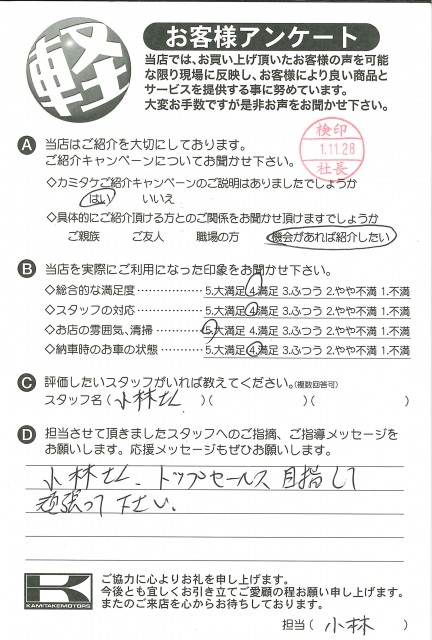 軽
お客様アンケート
当店では、お買い上げ頂いたお客様の声を可能
な限り現場に反映し、お客様により良い商品と
サービスを提供する事に努めています。
大変お手数ですが是非お声をお聞かせ下さい。
A 当店はご紹介を大切にしております。
ご紹介キャンペーンについてお聞かせ下さい。
検印
1.11.28
社長
◇カミタケご紹介キャンペーンのご説明はありましたでしょうか
はい いいえ
◇具体的にご紹介頂ける方とのご関係をお聞かせ頂けますでしょうか
ご親族 ご友人 職場の方 機会があれば紹介したい
B 当店を実際にご利用になった印象をお聞かせ下さい。
◇総合的な満足度 ………………… 5.大満足 4.満足 3.ふつう 2.やや不満 1.不満
◇スタッフの対応 ………………… 5.大満足 4.満足 3.ふつう 2.やや不満 1.不満
◇お店の雰囲気、清掃 …………… 5.大満足 4.満足 3.ふつう 2.やや不満 1.不満
◇納車時のお車の状態 …………… 5.大満足 4.満足 3.ふつう 2.やや不満 1.不満
C 評価したいスタッフがいれば教えてください。(複数回答可)
スタッフ名 ( 小林さん )( )( )
D 担当させて頂きましたスタッフへのご指摘、ご指導メッセージを
お願いします。応援メッセージもぜひお願いします。
小林さん、トップセールス目指して
頑張って下さい。
K
KAMITAKEMOTORS
ご協力に心よりお礼を申し上げます。
今後とも宜しくお引き立てご愛顧の程お願い申し上げます。
またのご来店を心からお待ちしております。
担当 ( 小林 )